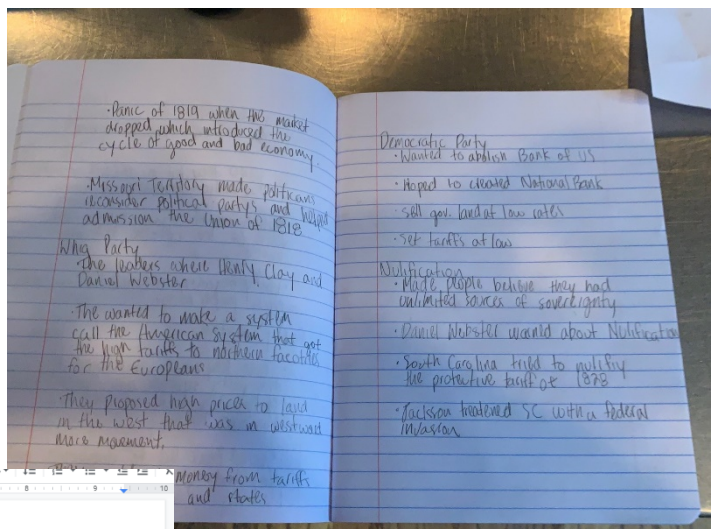 ·Panic of 1819 when the market
dropped which introduced the
cycle of good and bad economy
·Missouri Territory made politicans
reconsider political partys and helped
admission the Union of 1818
Whig Party
·The leaders where Henry Clay and
Daniel Webster
·The wanted to make a system
call the American System that got
the high tariffs to northern facotries
for the Europeans
·They proposed high prices to land
in the west that was in westward
more movement.
money from tariffs
and states
Democratic Party
·Wanted to abolish Bank of US
·Hoped to created National Bank
·sell gov. land at low rates
·set tariffs at law
Nulification
·Made people believe they had
unlimited sources of sovereignty
·Daniel Webster warnld about Nulification
·South Carolina tried to nulifiy
the protective tariff of 1828
·Jackson treatened SC with a federal
invasion
8 9 10